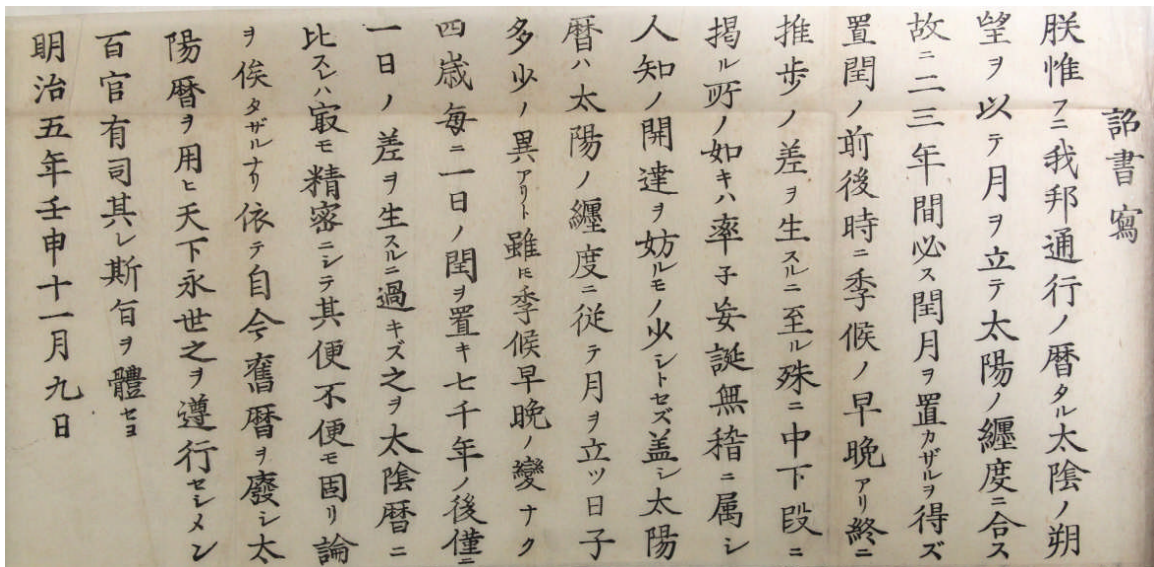 詔書寫
朕惟フニ我邦通行ノ暦タル太陰ノ朔
望ヲ以テ月ヲ立テ太陽ノ纏度ニ合ス
故ニ二三年間必ス閏月ヲ置カザルヲ得ズ
置閏ノ前後時ニ季候ノ早晩アリ終ニ
推歩ノ差ヲ生スルニ至ル殊ニ中下段ニ
掲ル所ノ如キハ率子妄誕無稽ニ属シ
人知ノ開達ヲ妨ルモノ少シトセズ盖シ太陽
暦ハ太陽ノ纏度ニ従テ月ヲ立ツ日子
多少ノ異アリト雖𪜈季候早晩ノ變ナク
四歳毎ニ一日ノ閏ヲ置キ七千年ノ後僅ニ
一日ノ差ヲ生スルニ過キズ之ヲ太陰暦ニ
比スレハ㝡モ精密ニシテ其便不便モ固リ論
ヲ俟タザルナリ依テ自今舊暦ヲ廢シ太
陽暦ヲ用ヒ天下永世之ヲ遵行セシメン
百官有司其レ斯旨ヲ體セヨ
明治五年壬申十一月九日